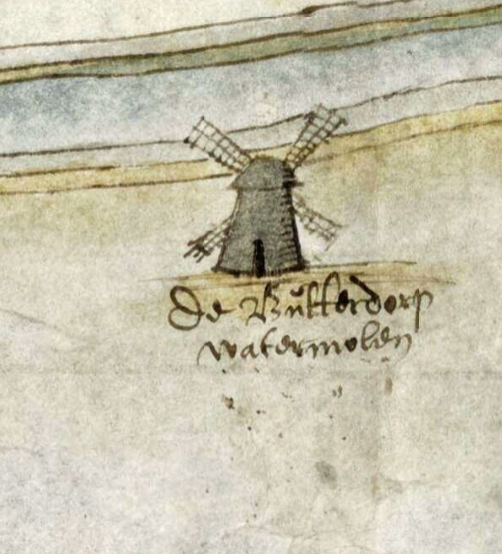 De Butterdorp
watermolen